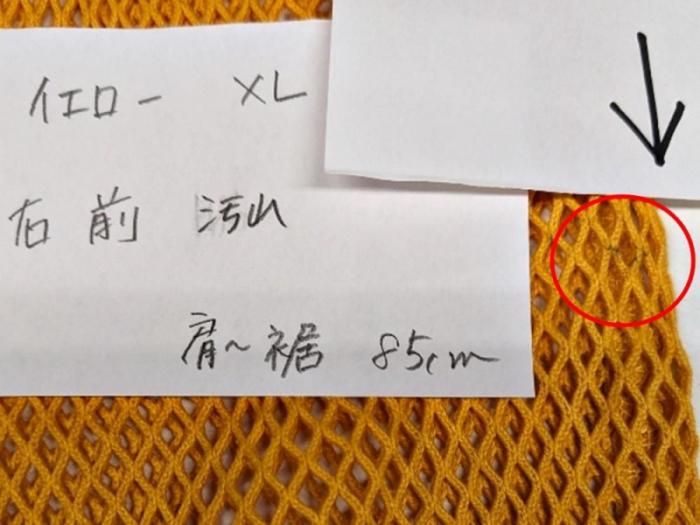 イエロー XL
右前 汚れ
肩~裾 85cm